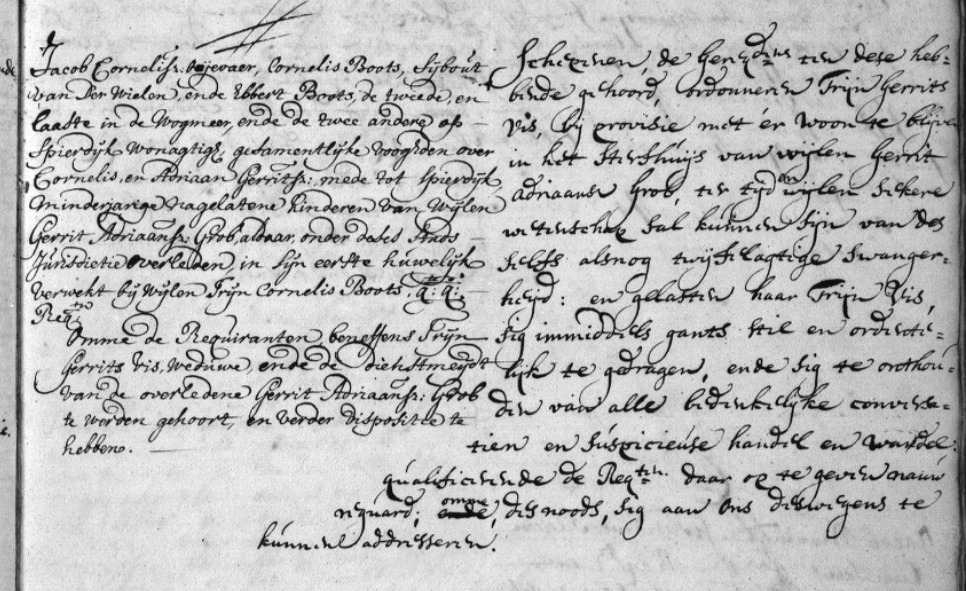 Jacob Cornelisz: Oijevaer, Cornelis Boots, Sijbout
van Der Wielen, ende Ebbert Boots, de tweede, en
laaste in de Wogmeer, ende de twee andere op
Spierdijk wonagtigh, gesamentlijke voogden over
Cornelis, en Adriaan Gerritsz: mede tot Spierdijk
minderjarige nagelatene kinderen van wijlen
Gerrit Adriaansz: Grob, aldaar, onder deses Stads
Jurisdictie overleden, in sijn eerste huwelijk
verwekt bij wijlen Trijn Cornelis Boots, q: q:
Reqten
Omme de Requiranten, beneffens Trijn
Gerrits Vis, weduwe, ende de dienstmeijdt
van de overledene Gerrit Adriaansz: Grob
te werden gehoort, en verder dispositie te
hebben.
Schepenen, de Gereqdens ten dese heb-
bende gehoord, ordonneren Trijn Gerrits
Vis, bij provisie met er woon te blijven
in het Sterfhuijs van wijlen Gerrit
Adriaansz Grob, ter tijd en wijlen sekere
wetenschap sal kunnen sijn van des
selfs alsnog twijfelagtige Swanger-
heyd: en gelasten haar Trijn Vis,
sig immiddels gants stil en ordente-
lijk te gedragen, ende sig te onthou-
den van alle bedenkelijke conversa-
tien en suspicieuse handel en wandel.
qualificerende de Reqten. daar op te geven nauw
reguard; omme, des noods, sig aan ons deswegens te
kunnen addresseren.